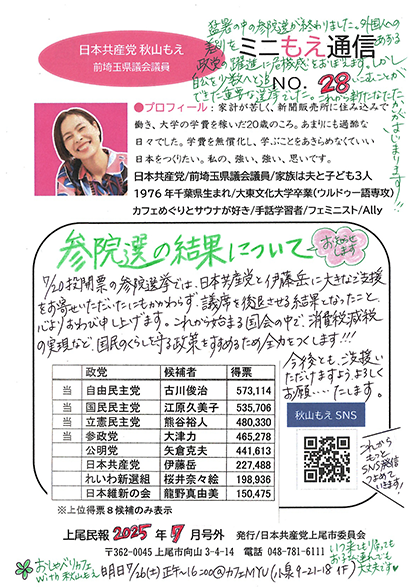 日本共産党 秋山もえ
前埼玉県議会議員
ミニもえ通信
NO. 28
猛暑の中の参院選が終わりました。外国人への
差別を
政党の躍進に危機感をおぼえます。しかし
自公を少数へと追いこむことが
できた重要な選挙でした。これから新たなたた
かいがはじまります!!
●プロフィール：家計が苦しく、新聞販売所に住み込みで
働き、大学の学費を稼いだ20歳のころ。あまりにも過酷な
日々でした。学費を無償化し、学ぶことをあきらめなくていい
日本をつくりたい。私の、強い、強い、思いです。
日本共産党/前埼玉県議会議員/家族は夫と子ども3人
1976年千葉県生まれ/大東文化大学卒業(ウルドゥー語専攻)
カフェめぐりとサウナが好き/手話学習者/フェミニスト/Ally
参院選の結果について
お知らせ
します
7/20投開票の参院選挙では、日本共産党と伊藤岳に大きなご支援
をお寄せいただいたにもかかわらず、議席を後退させる結果となったこと、
心よりおわび申し上げます。これから始まる国会の中で、消費税減税
の実現など、国民のくらしを守る政策をすすめるため全力をつくします!!!
今後とも、ご支援い
ただけますようよろしく
お願い・・いたします。
政党 候補者 得票
当 自由民主党 古川俊治 573,114
当 国民民主党 江原久美子 535,706
当 立憲民主党 熊谷裕人 480,330
当 参政党 大津力 465,278
公明党 矢倉克夫 441,613
日本共産党 伊藤岳 227,488
れいわ新選組 桜井奈々絵 198,936
日本維新の会 龍野真由美 150,475
※上位得票8候補のみ表示
秋山もえ SNS
これから
もっと
SNS発信
つよめて
いきます!
上尾民報 2025年 7月号外 発行/日本共産党上尾市委員会
〒362-0045 上尾市向山3-4-14 電話 048-781-6111
おしゃべりカフェ
with 秋山もえ
明日 7/26(土)正午〜16:00@カフェMYU(小泉9-21-18 1F)
いつ来ても帰っても
大丈夫です♥